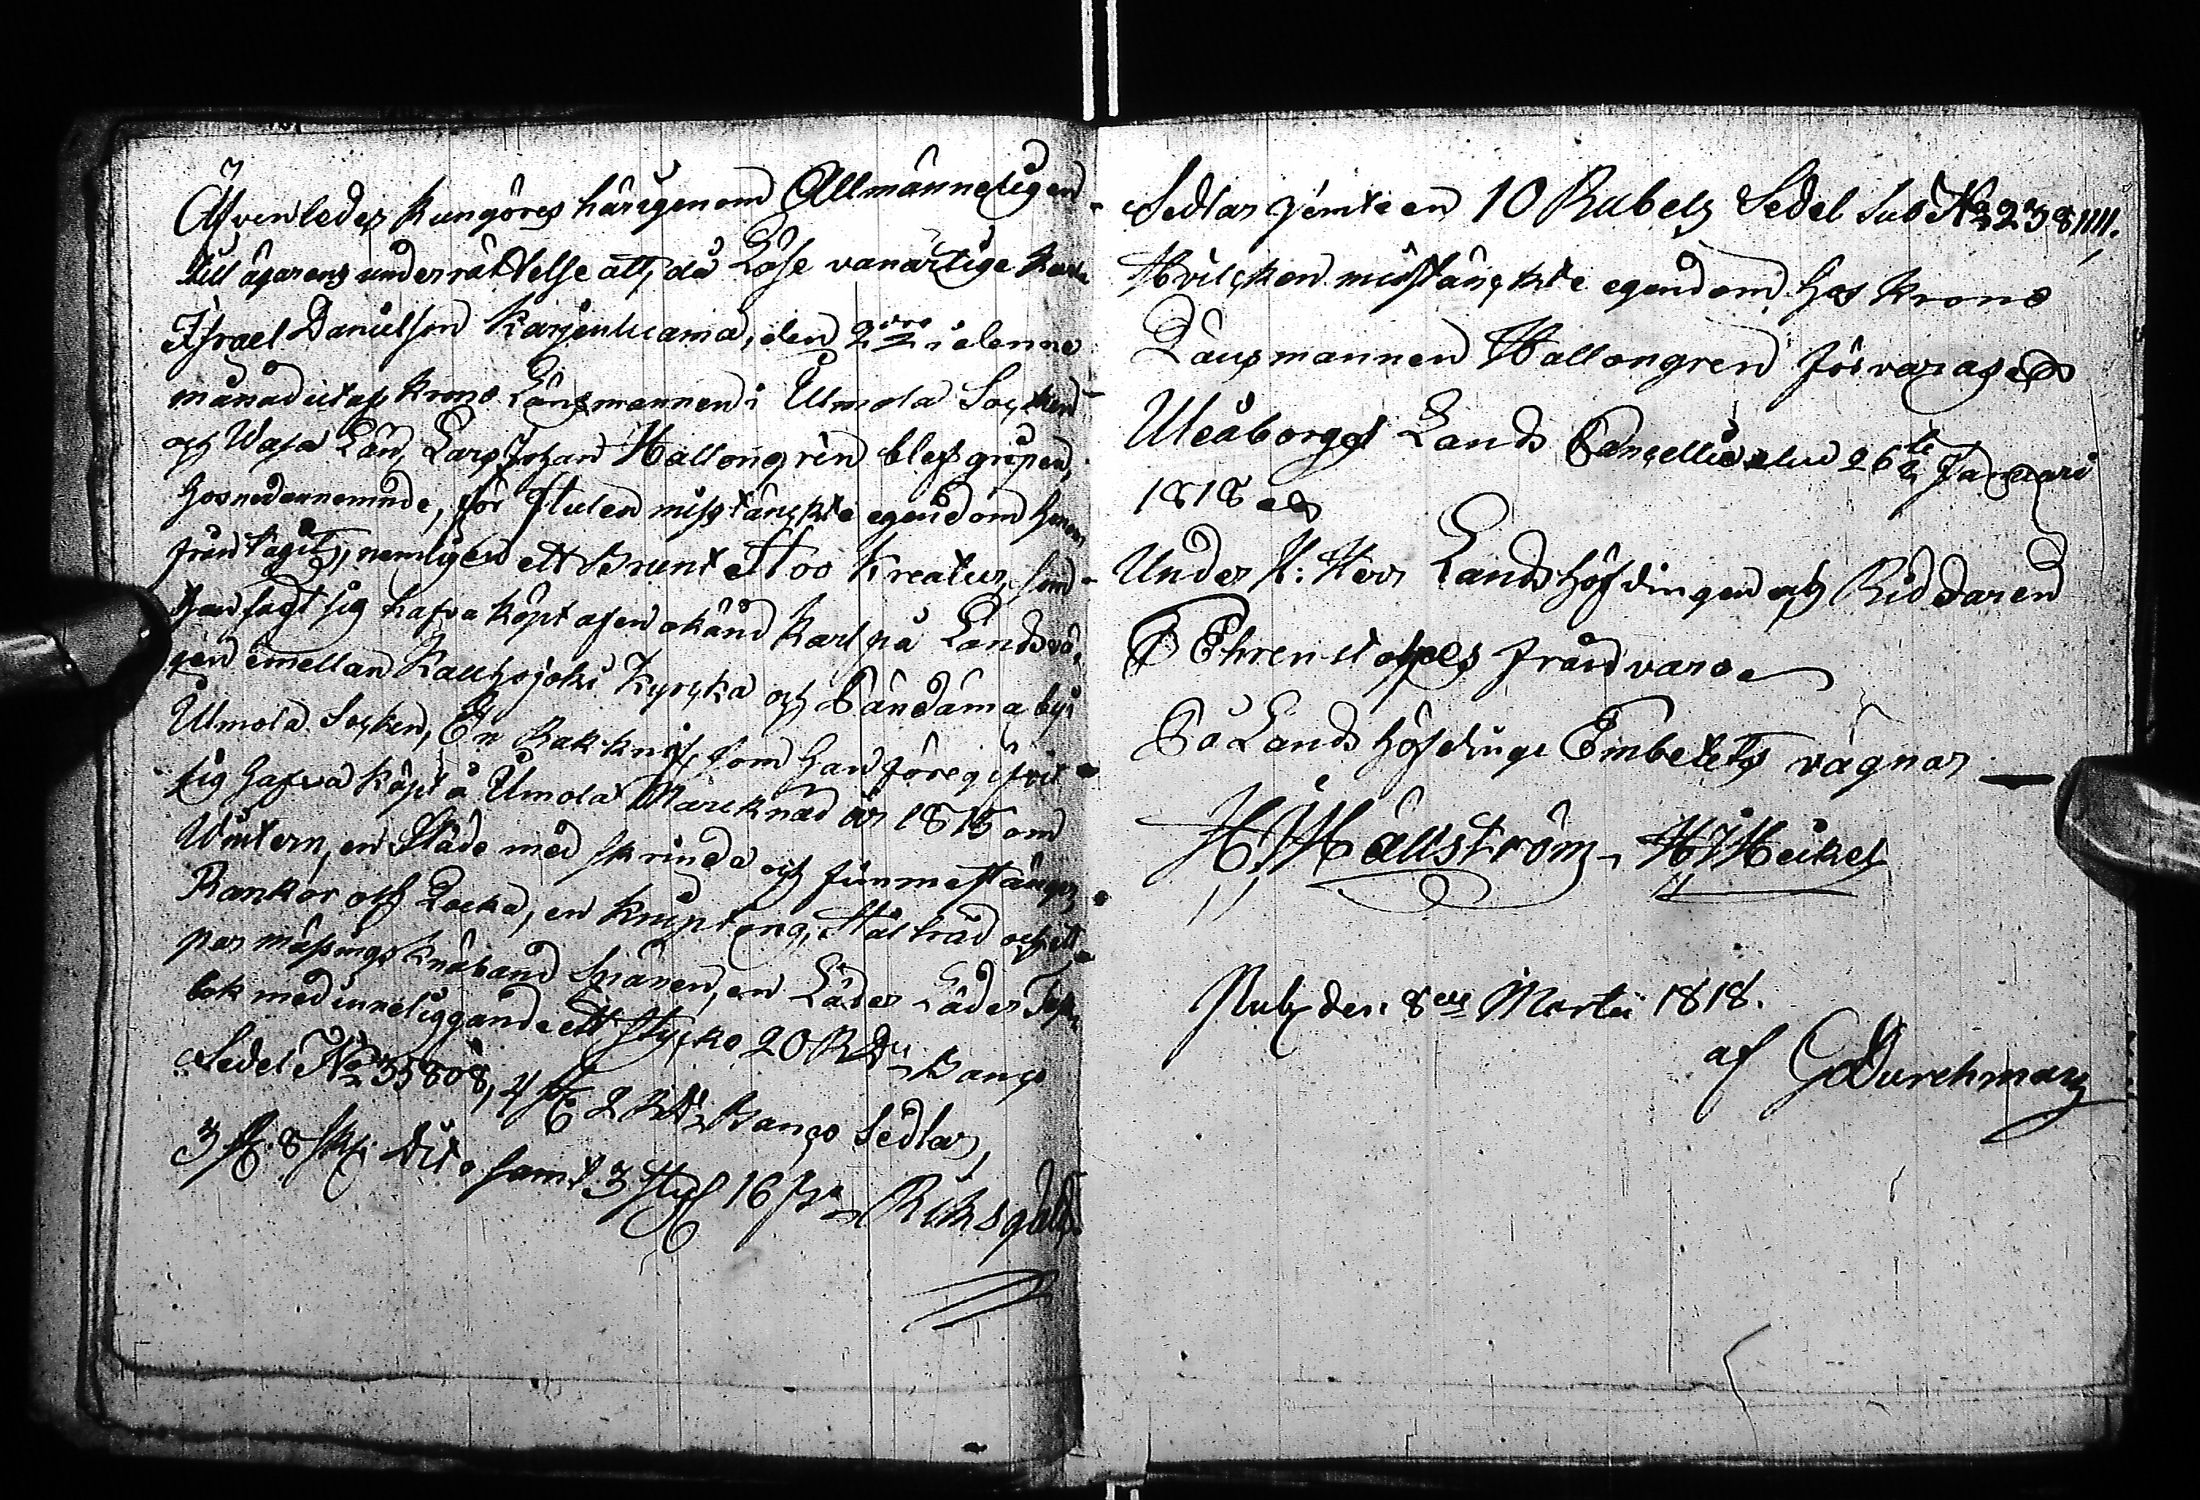 Äfvenledes kungöres härigenom Allmänneligen
till ägarens underrättelse att, då Löse vanartige karlen
Israel Danielson Karjenluama, den 2dra i denne
månad utaf krono Länsmannen i Ilmola Socken
och Wasa Län, Lars Johan Hallongren blef gripen,
hos nedannemnde, för stulen misstänckte egendom honom
fråntagits, nemligen ett Brunt Stoo kreatur, som
han sagt sig hafva köpt af en okänd karl på Landsvä-
gen emellan Kauhajoki Kyrcka och Pändämä by i
Ilmola Socken, En Rakknif, som han föregifvit
sig hafva köpt å Ilmola Marcknad år 1815 om
Wintern, en Släde med skrinda och fimmelstänger
Rankor och Locka, en kniptång, Ståltråd och ett
par mässings knäband Spännen, en Läder
bok med inneliggande ett stycke 20 RD Banco
Sedel No 35808, 4 st 2 RD Banco Sedlar,
3 st 8 sk. dito samt 3 st 16 sk Riksgälds
Sedlar jemte en 10 Rubels Sedel sub No 2381111.
Hvilcken misstänckte egendom hos krono
Länsmannen Hallongren förvaras
Uleåborgs Lands Cancellie den 26te Januari
1818
Under H: Herr Landshöfdingen och Riddaren
Ehrenstolpes frånvaro
På Landshöfdinge Embetets vägnar
H J Hällström H J Heikel
Publ den 8de Martii 1818.
af G Durchman